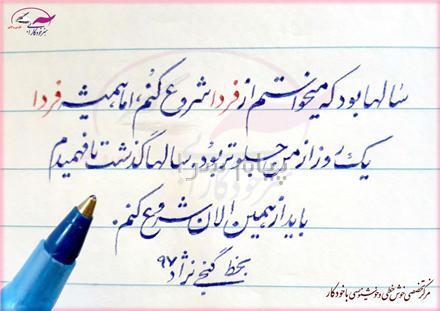 سالها بود که میخواستم از فردا شروع کنم، اما همیشه فردا
یک روز از من جلوتر بود. سالها گذشت تا فهمیدم
باید از همین الان شروع کنم.
بخط گنجی نژاد ۹۷
مرکز تخصصی خوش خطی و خوشنویسی با خودکار